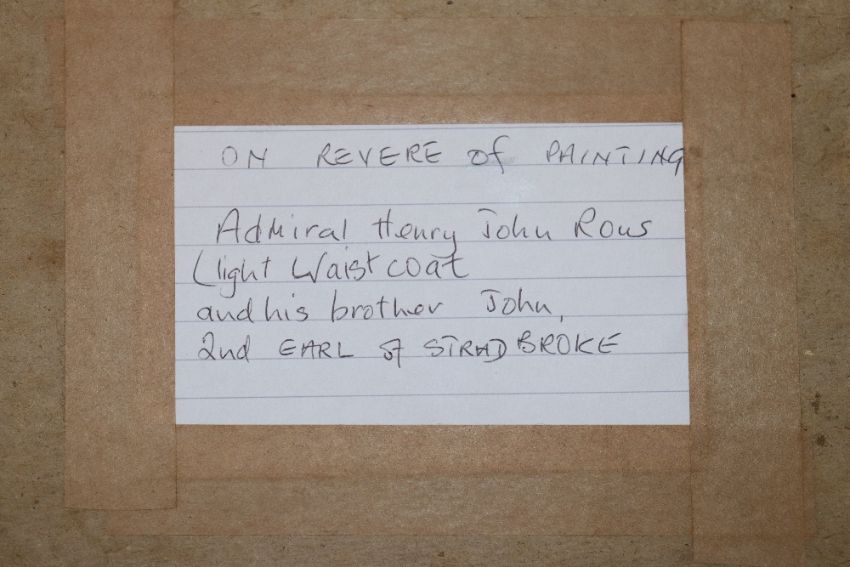 ON REVERE of PAINTING
Admiral Henry John Rous
(light Waistcoat
and his brother John,
2nd EARL of STRADBROKE